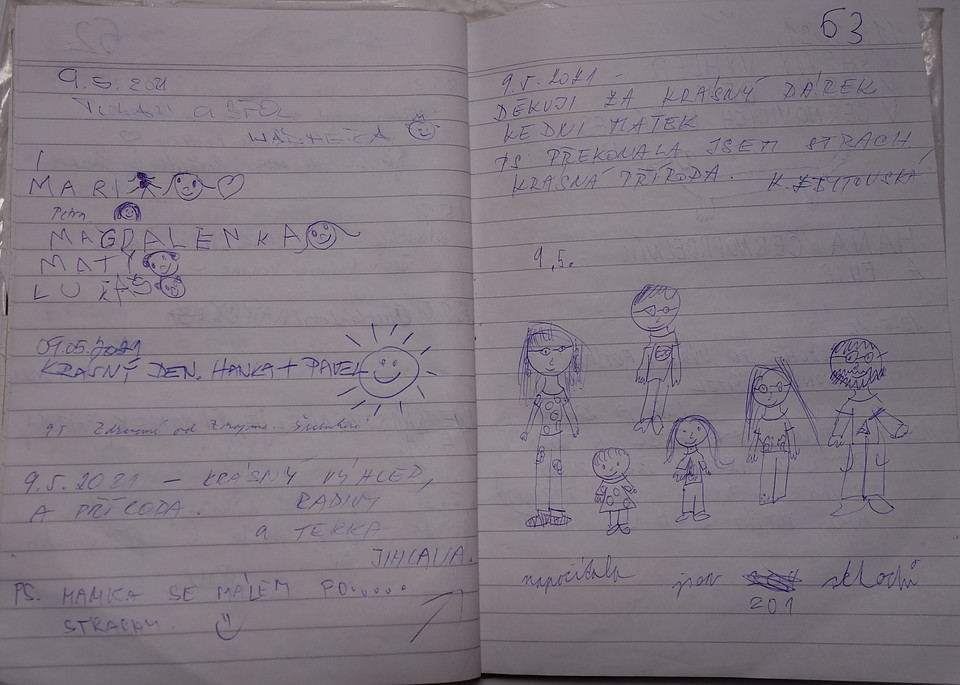 9.5. 2021
MARI
Petra
MAGDALENKA
MATY
LUKÁŠ
09.05.2021
KRÁSNÝ DEN. HANKA + PAVEL
9.5 Zdravíme od Znojma
9.5.2021 – KRÁSNÝ VÝHLED,
A PŘÍRODA. RADIM
a TERKA
JIHLAVA.
PS. MAMKA SE MÁLEM PO......
STRACHY.
63
9.5.2021 -
DĚKUJI ZA KRÁSNÝ DÁREK
KE DNI MATEK
PS PŘEKONALA JSEM STRACH
KRÁSNÁ PŘÍRODA. K.
9.5.
napočítala jsem 201 schodů